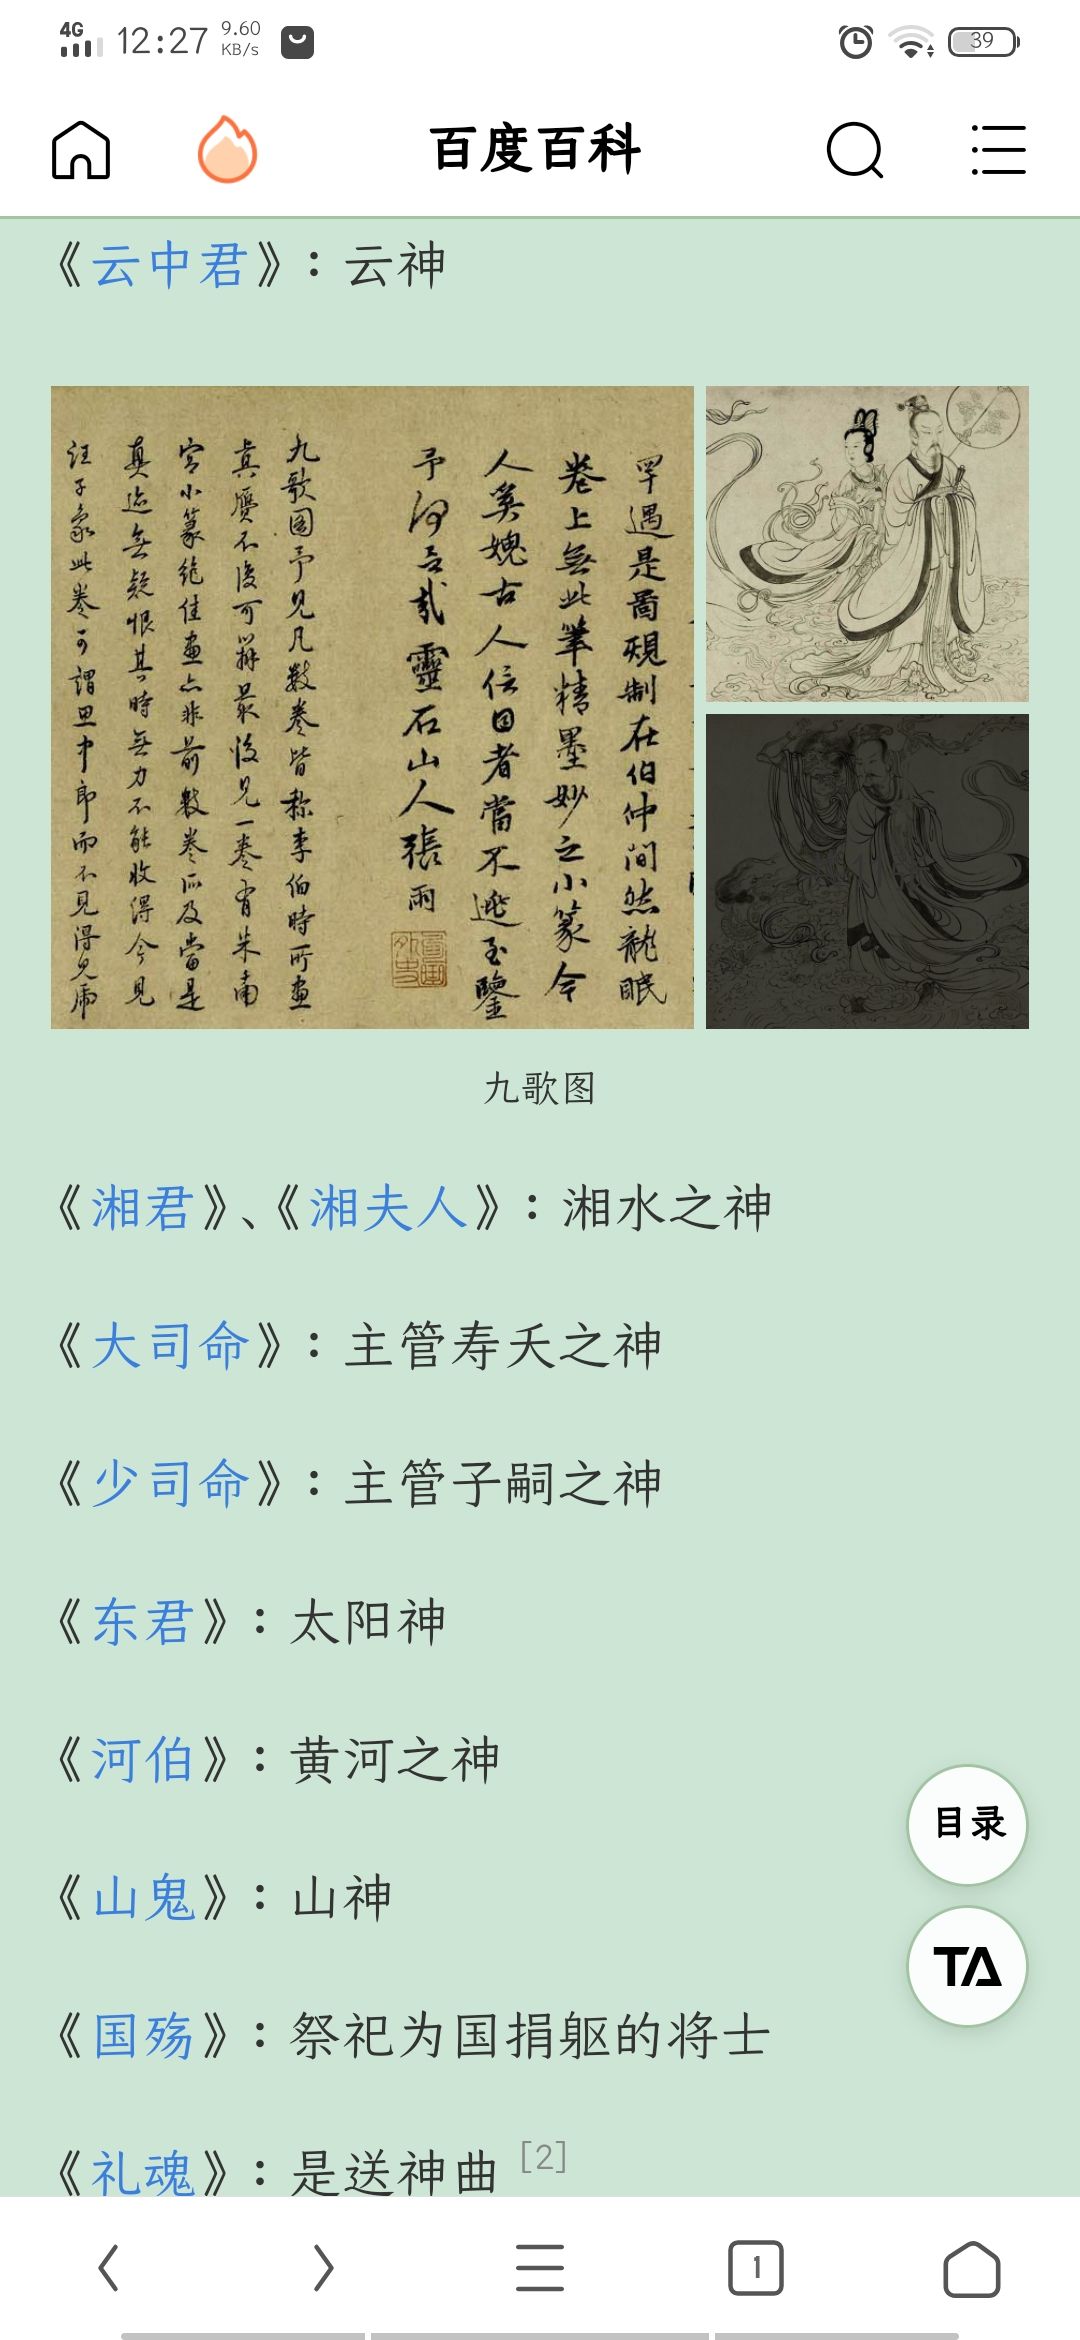 4G 12:27 9.60 KB/s 39
百度百科
《云中君》：云神
罕遇是啚規制在伯仲間然龍眠
卷上無此筆精墨妙之小篆今
人奚媿古人信目者當不逃玉鑒
靈石山人張雨
九歌图予見凡數卷皆称李伯時所畫
真贋不復可辨最後見一卷有朱南
宮小篆絶佳畫亦非前數卷所及當是
真迹無疑恨其時無力不能收得今見
汪子象此卷可謂
中郎而不見得見虎
九歌图
《湘君》、《湘夫人》：湘水之神
《大司命》：主管寿夭之神
《少司命》：主管子嗣之神
《东君》：太阳神
《河伯》：黄河之神
目录
《山鬼》：山神
TA
《国殇》：祭祀为国捐躯的将士
《礼魂》：是送神曲 [2]
1